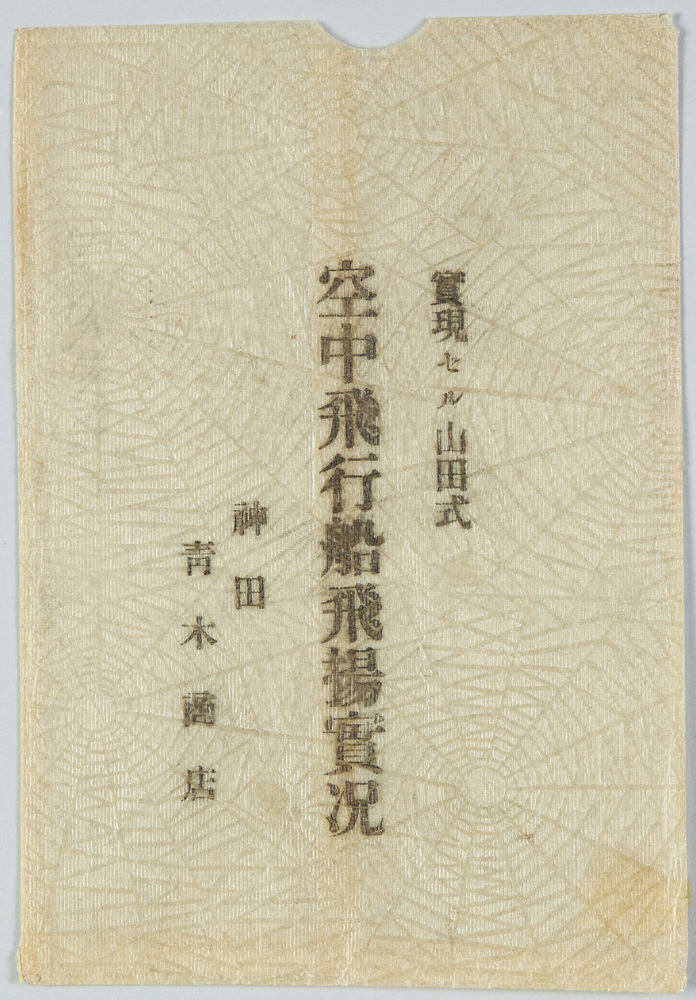 實現セル山田式
空中飛行船飛揚實况
神田
青木商店